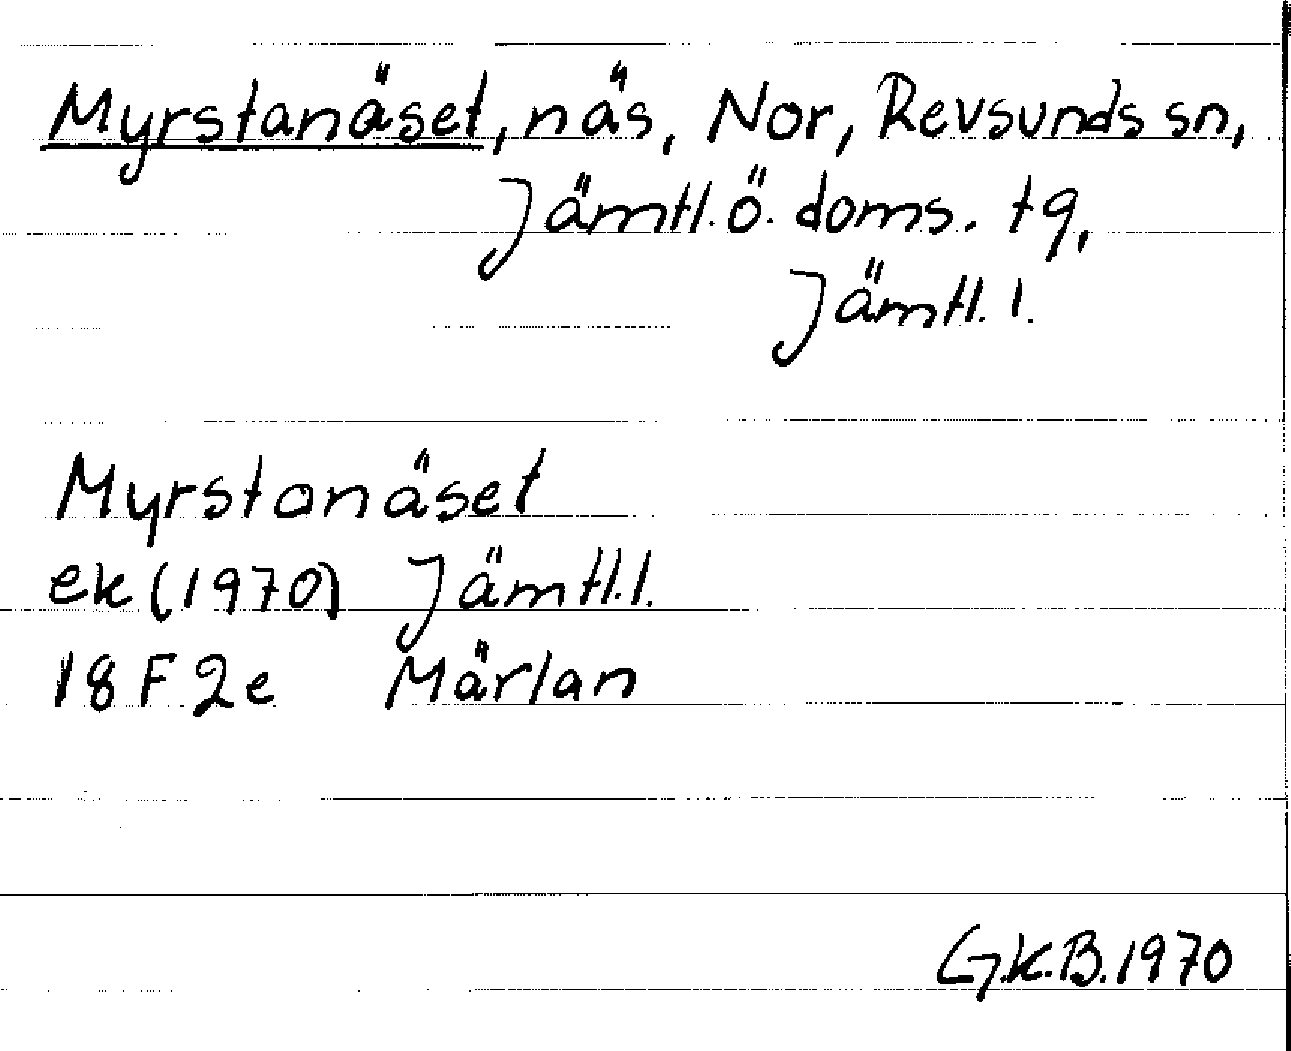 Myrstanäset, näs, Nor, Revsunds sn,
Jämtl. ö. doms. tg,
Jämtl. l.
Myrstanäset
ek (1970) Jämtl. l.
18 F 2e Märlan
G.K.B. 1970